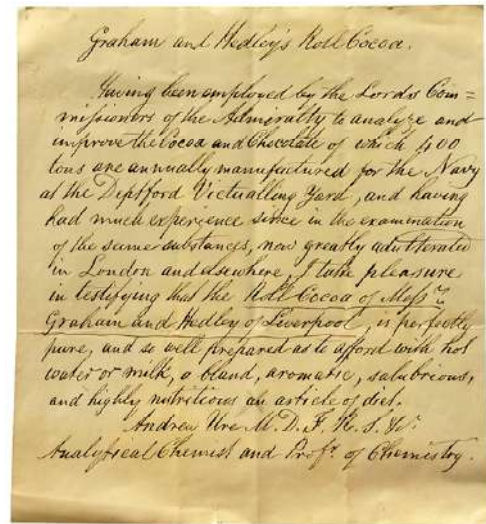 Graham and Hedley's Roll Cocoa.
Having been employed by the Lords Com=
missioners of the Admiralty to analyze and
improve the Cocoa and Chocolate of which 400
tons are annually manufactured for the Navy
at the Deptford Victualling Yard, and having
had much experience since in the examination
of the same substances, now greatly adulterated
in London and elsewhere, I take pleasure
in testifying that the Roll Cocoa of Messrs
Graham and Hedley of Liverpool, is perfectly
pure, and so well prepared as to afford with hot
water or milk, a bland, aromatic, salubrious,
and highly nutritious an article of diet.
Andrew Ure M.D.F.R.S. &c.
Analytical Chemist and Profr. of Chemistry.